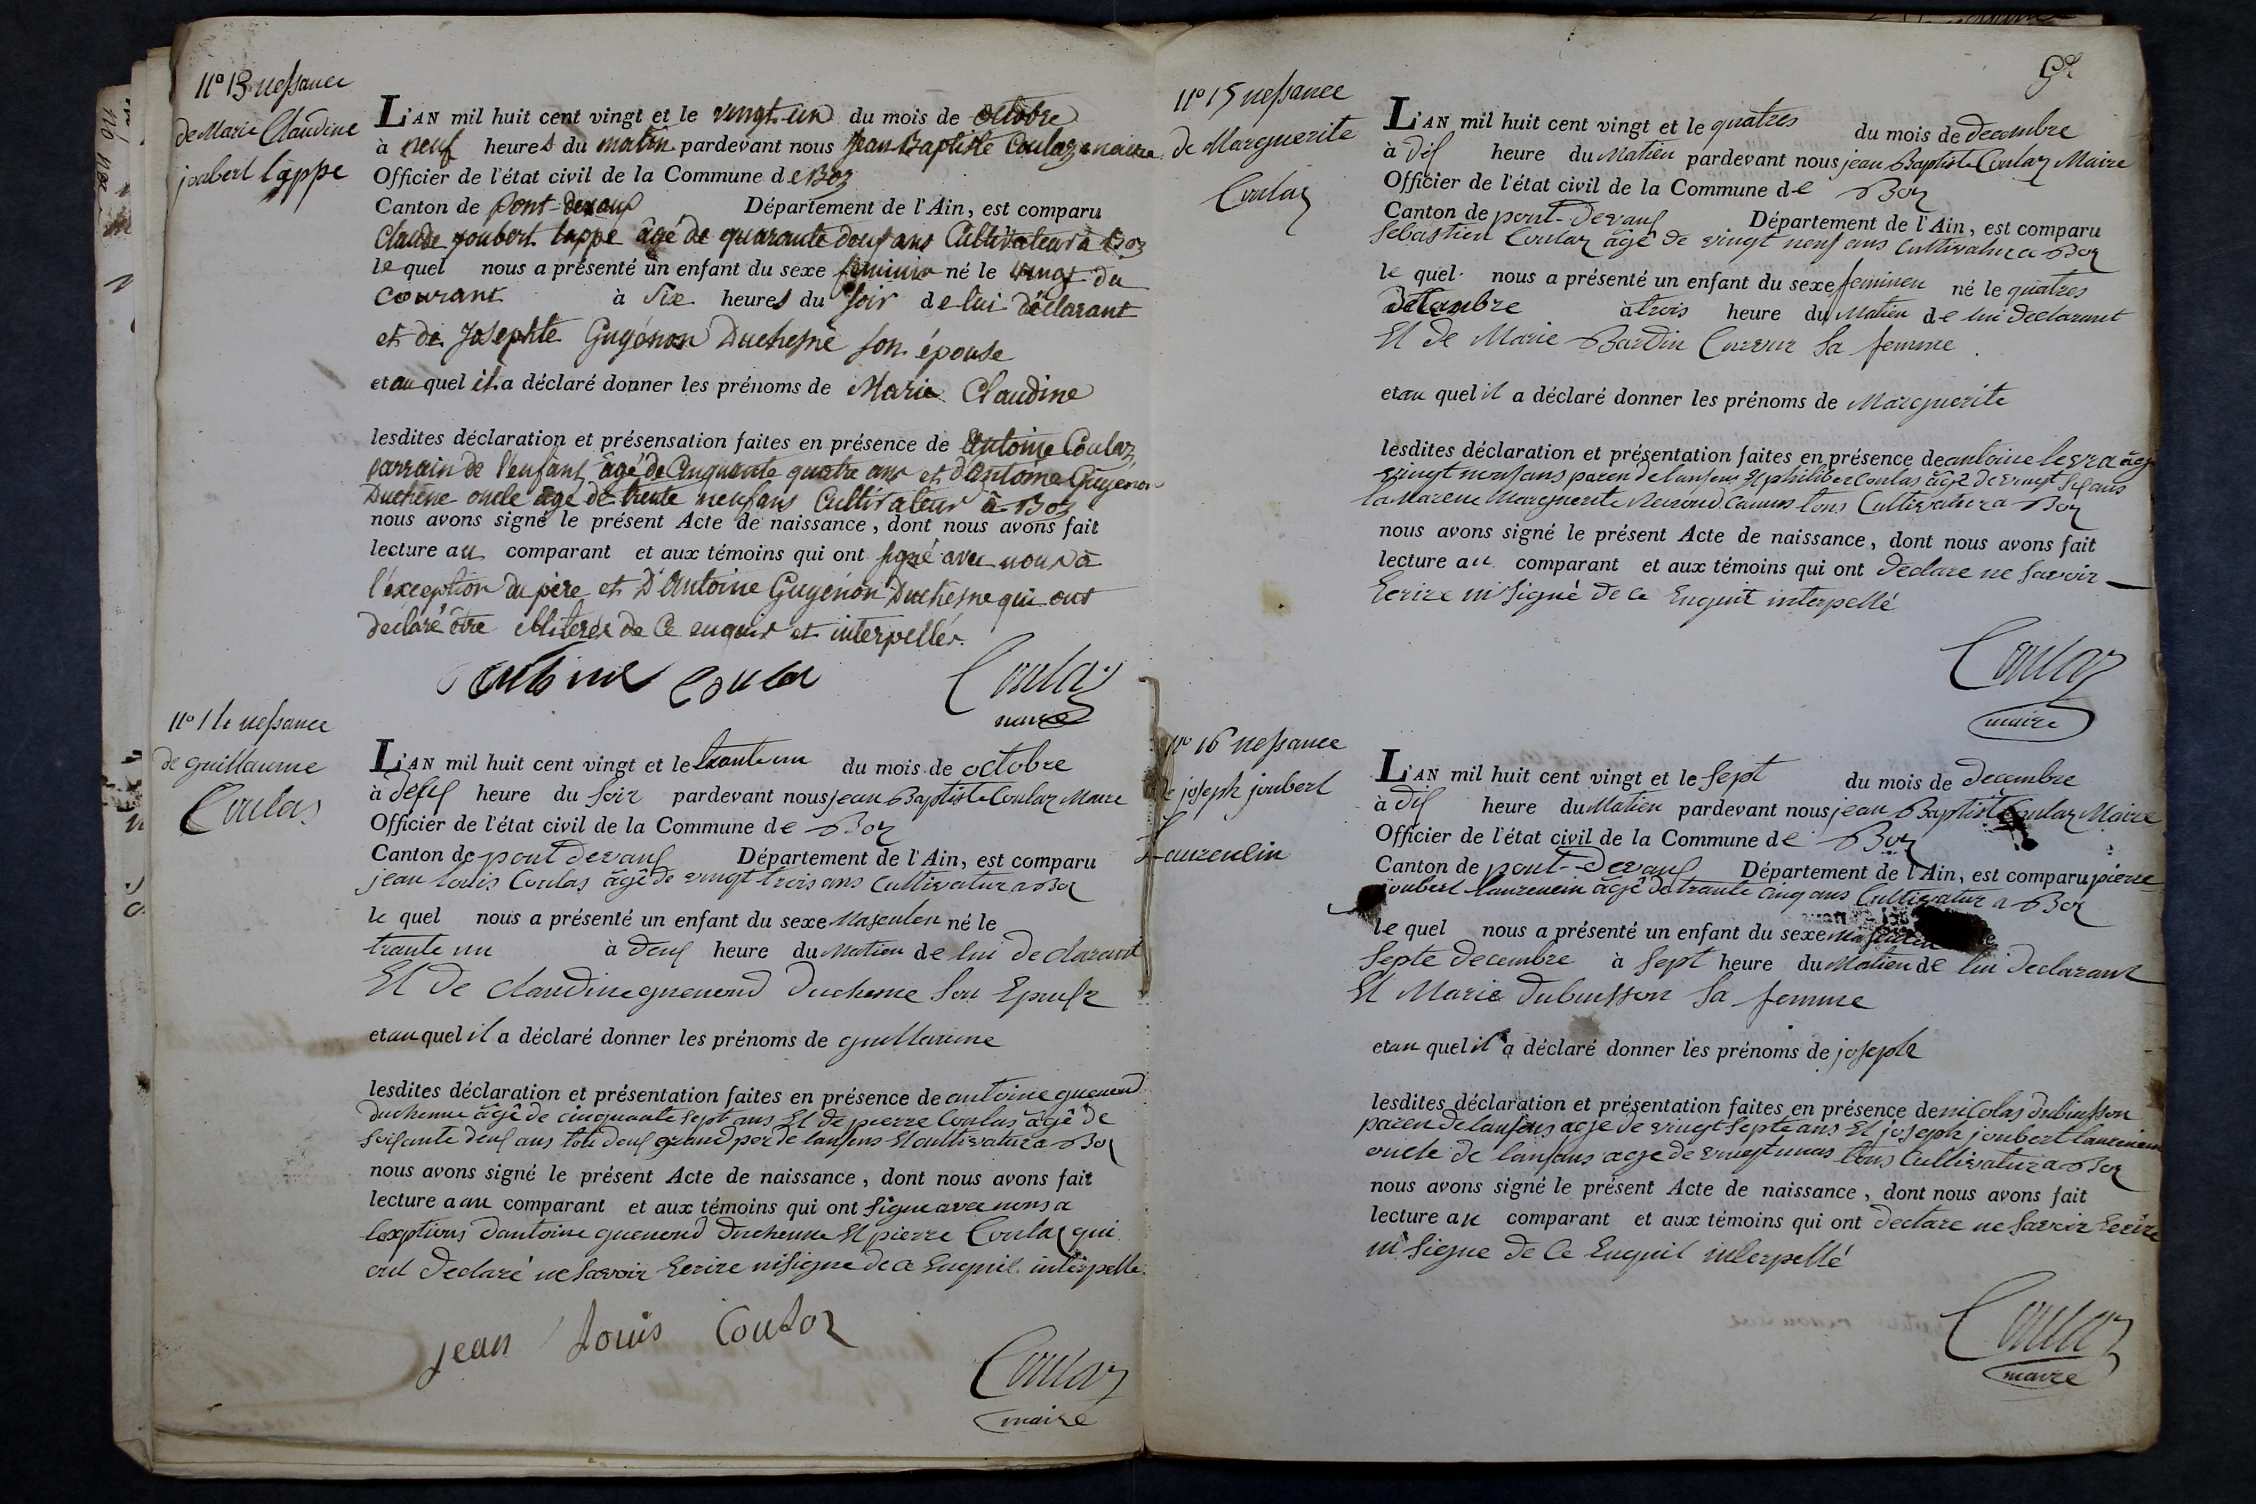 n° 13 nessance
de Marie Claudine
joubert lappe
L'AN mil huit cent vingt et le vingt-un du mois de octobre
à neuf heures du matin pardevant nous Jean Baptiste Coulaz maire
Officier de l'état civil de la Commune de Boz
Canton de Pont-devaux Département de l'Ain, est comparu
Claude joubert lappe âgé de quarante deux ans Cultivateur à Boz
le quel nous a présenté un enfant du sexe féminin né le vingt du
courant à Six heures du soir de lui déclarant
et de Josephte Guyénon Duchesne son épouse
et au quel il a déclaré donner les prénoms de Marie Claudine
lesdites déclaration et présensation faites en présence de Antoine Coulaz,
parrain de l'enfant, âgé de Cinquante quatre ans et d'antoine Guyenon
Duchêne oncle âgé de trente neuf ans Cultivateur à Boz
nous avons signé le présent Acte de naissance, dont nous avons fait
lecture au comparant et aux témoins qui ont signé avec nous à
l'exception du père et D'Antoine Guyénon Duchesne qui ont
déclaré être illiterés de ce enquis et interpellés.
Coulaz
maire
n° 14 nessance
de guillaume
Coulas
L'AN mil huit cent vingt et le trante un du mois de octobre
à deux heure du soir pardevant nous jean Baptiste Coulaz Maire
Officier de l'état civil de la Commune de Boz
Canton de pont devaux Département de l'Ain, est comparu
jean louis Coulas âgê de vingt trois ans Cultivatur a Boz
le quel nous a présenté un enfant du sexe Masculen né le
trante un à deux heure du Matien de lui declarant
Et de claudine guenond duchesne son Epouse
et au quel il a déclaré donner les prénoms de guillaume
lesdites déclaration et présentation faites en présence de antoine guenond
duchenne âgê de cinquante sept ans Et de pierre Coulas âgê de
soisante deux ans tou deux grand per de lanfens Et cultivatur a Boz
nous avons signé le présent Acte de naissance, dont nous avons fait
lecture a au comparant et aux témoins qui ont signe avec nous a
lexptions dantoine guenond duchenne Et pierre Coulaz qui
ont declaré ne savoir Ecrire ni signe de ce Enquit interpelle
jean louis Couloz
Coulaz
maire
n° 15 nessance
de Marguerite
Coulaz
L'AN mil huit cent vingt et le quatres du mois de decembre
à dix heure du Matien pardevant nous jean Baptiste Coulaz Maire
Officier de l'état civil de la Commune de Boz
Canton de pont-devaux Département de l'Ain, est comparu
Sebastien Coulaz âgê de vingt neuf ans cultivatur a Boz
le quel nous a présenté un enfant du sexe feminen né le quatres
decembre à trois heure du Matien de lui declarant
Et de Marie Bardin sa femme
et au quel il a déclaré donner les prénoms de Marguerite
lesdites déclaration et présentation faites en présence de antoine âge
vingt neuf ans paren de lanfens Et philiber Coulas âgê de vingt six ans
la Marene Marguerite Camus tous Cultivatur a Boz
nous avons signé le présent Acte de naissance, dont nous avons fait
lecture au comparant et aux témoins qui ont declare ne savoir
Ecrire ni signé de ce Enquit interpellé
Coulaz
maire
n° 16 nessance
de joseph joubert
L'AN mil huit cent vingt et le sept du mois de decembre
à dix heure du Matien pardevant nous jean Baptiste Coulaz Maire
Officier de l'état civil de la Commune de Boz
Canton de pont-devaux Département de l'Ain, est comparu pierre
joubert âgê de trante cinq ans Cultivatur a Boz
le quel nous a présenté un enfant du sexe
septe decembre à sept heure du Matien de lui declarant
Et Marie dubuisson sa femme
et au quel il a déclaré donner les prénoms de joseph
lesdites déclaration et présentation faites en présence de nicolas dubuisson
paren de lanfens age de vingt septe ans Et joseph joubert
oncle de lanfans age de vingt un ans tous Cultivatur a Boz
nous avons signé le présent Acte de naissance, dont nous avons fait
lecture au comparant et aux témoins qui ont declare ne savoir Ecrire
ni signe de ce Enquit interpellé
Coulaz
maire